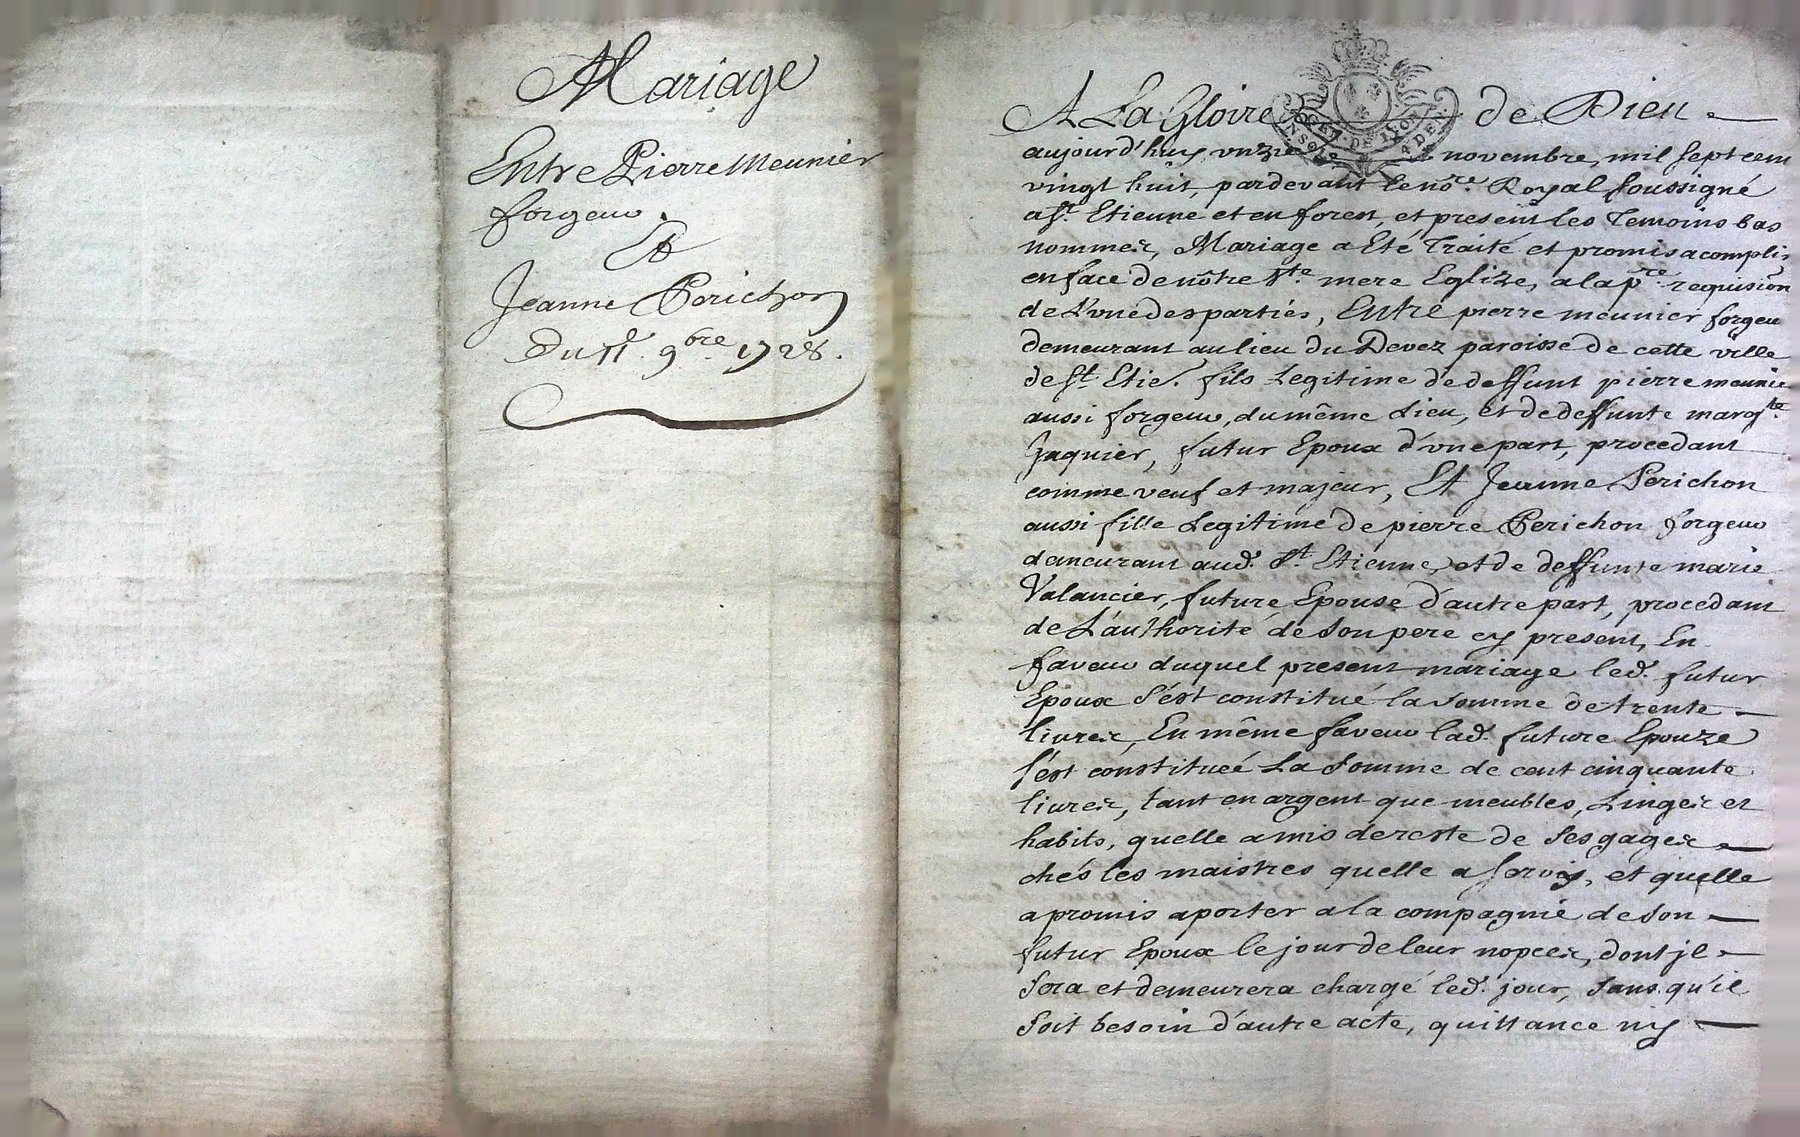 Mariage
Entre Pierre Meunier
forgeur.
Et
Jeanne Perichon
Du 11e. 9bre. 1728.
A La Gloire de Dieu
aujourd'huy unze novembre, mil sept cent
vingt huit, pardevant le nore. Royal soussigné
a St. Etienne et en forest, et present les Temoins bas
nommez, Mariage a Eté Traité et promis acomplir
en face de nôtre Ste. mere Eglize, a la pre. requision
de L'une des parties, Entre pierre meunier forgeur
demeurant au lieu du Devez paroisse de cette ville
de St. Etie. fils Legitime de deffunt pierre meunier
aussi forgeur, du même Lieu, et de deffunte margte.
Jaquier, futur Epoux d'une part, procedant
comme veuf et majeur, Et Jeanne Perichon
aussi fille Legitime de pierre Perichon forgeur
demeurant aud. St. Etienne, et de deffunte marie
Valancier, future Epouse d'autre part, procedant
de L'authorité de son pere cy present, En
faveur duquel present mariage led. futur
Epoux s'est constitué la somme de trente
livrez, En même faveur lad. future Epouze
s'est constitueé La somme de cent cinquante
livrez, tant en argent que meubles, Lingez et
habits, quelle a mis de reste de ses gagez
chés les maistres quelle a servis, et quelle
a promis aporter a la compagnie de son
futur Epoux le jour de leur nopcez, dont jl
sera et demeurera chargé led. jour, sans qu'il
soit besoin d'autre acte, quittance ny